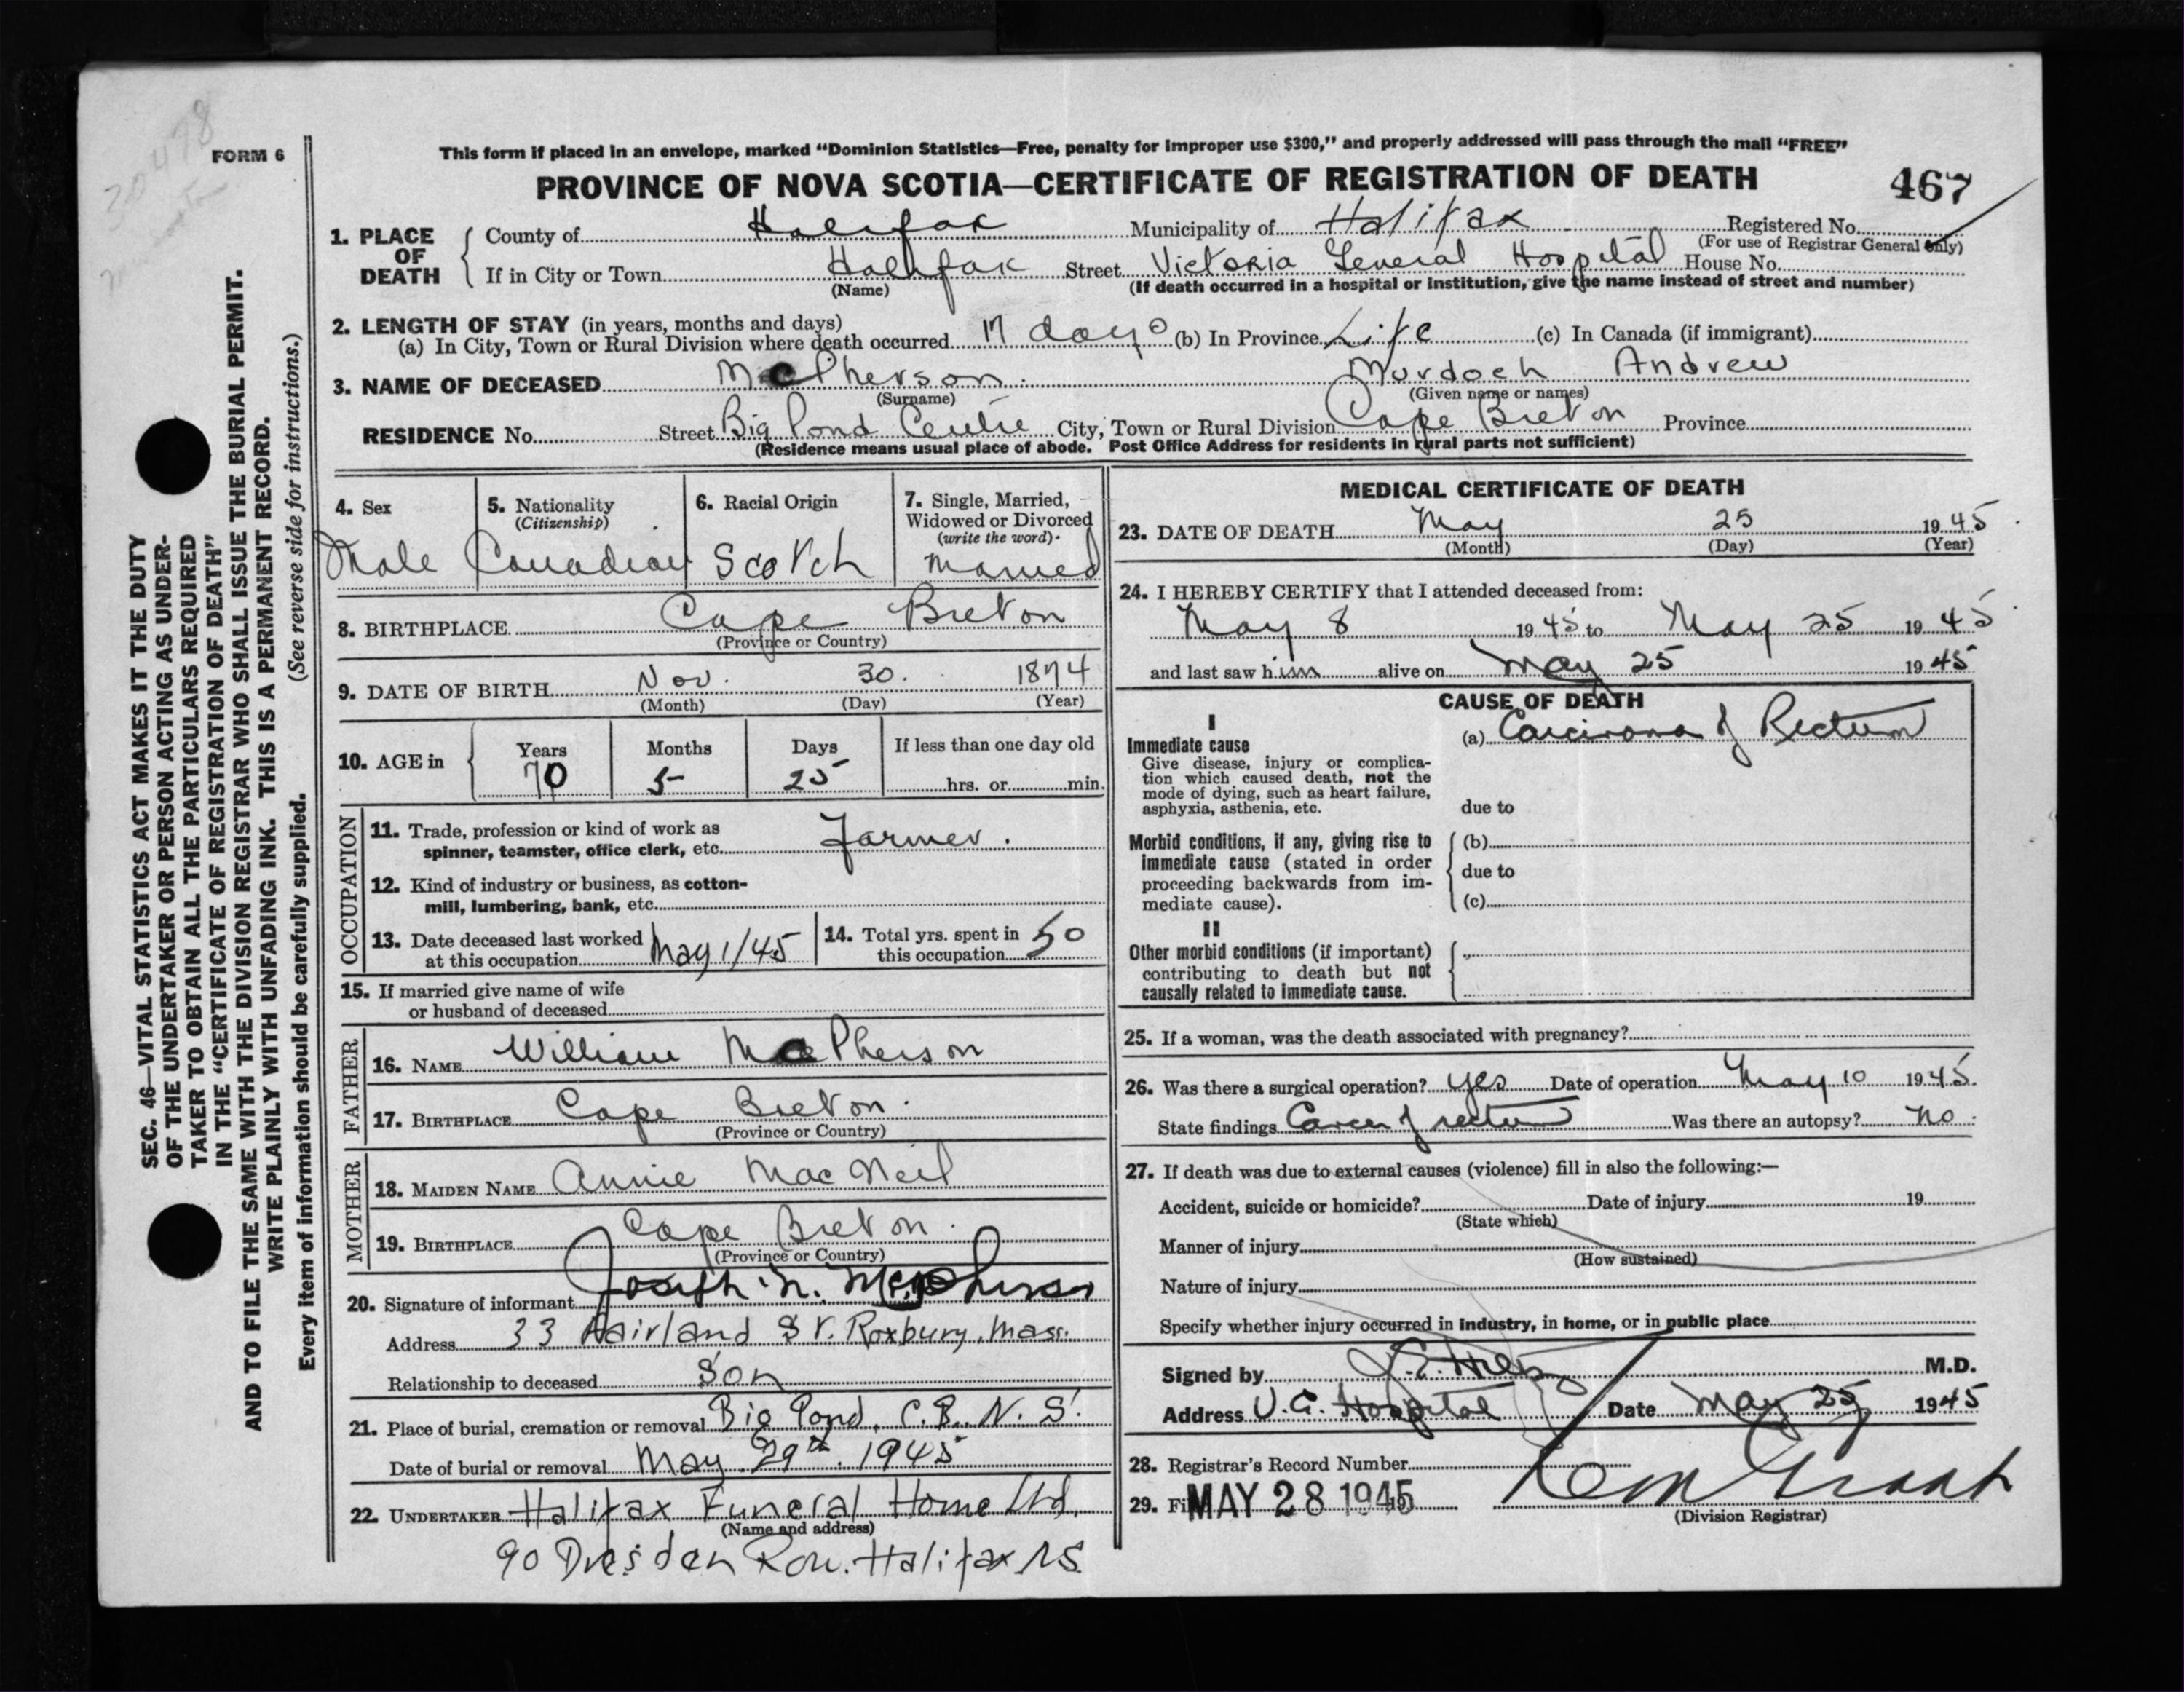 30498
FORM 6
This form if placed in an envelope, marked "Dominion Statistics—Free, penalty for improper use $300," and properly addressed will pass through the mail "FREE"
PROVINCE OF NOVA SCOTIA—CERTIFICATE OF REGISTRATION OF DEATH
467
1. PLACE OF DEATH
County of Halifax Municipality of Halifax Registered No.
(For use of Registrar General only)
If in City or Town Halifax Street Victoria General Hospital House No.
(Name) (If death occurred in a hospital or institution, give the name instead of street and number)
2. LENGTH OF STAY (in years, months and days)
(a) In City, Town or Rural Division where death occurred 17 days (b) In Province Life (c) In Canada (if immigrant)
3. NAME OF DECEASED McPherson. Murdoch Andrew
(Surname) (Given name or names)
RESIDENCE No. Street Big Pond Centre City, Town or Rural Division Cape Breton Province
(Residence means usual place of abode. Post Office Address for residents in rural parts not sufficient)
4. Sex
Male
5. Nationality
(Citizenship)
Canadian
6. Racial Origin
Scotch
7. Single, Married,
Widowed or Divorced
(write the word)
Married
8. BIRTHPLACE Cape Breton
(Province or Country)
9. DATE OF BIRTH Nov. 30. 1874
(Month) (Day) (Year)
10. AGE in
Years Months Days If less than one day old
70 5 25 hrs. or min.
OCCUPATION
11. Trade, profession or kind of work as
spinner, teamster, office clerk, etc. Farmer.
12. Kind of industry or business, as cotton-
mill, lumbering, bank, etc.
13. Date deceased last worked
at this occupation May 1/45
14. Total yrs. spent in
this occupation 50
15. If married give name of wife
or husband of deceased
FATHER
16. NAME William MacPherson
17. BIRTHPLACE Cape Breton.
(Province or Country)
MOTHER
18. MAIDEN NAME Annie MacNeil
19. BIRTHPLACE Cape Breton.
(Province or Country)
20. Signature of informant Joseph N. McPherson
Address 33 Fairland St. Roxbury, Mass.
Relationship to deceased Son
21. Place of burial, cremation or removal Big Pond, C.B. N. S.
Date of burial or removal May 29th. 1945
22. UNDERTAKER Halifax Funeral Home Ltd.
(Name and address)
90 Dresden Row. Halifax NS
MEDICAL CERTIFICATE OF DEATH
23. DATE OF DEATH May 25 1945
(Month) (Day) (Year)
24. I HEREBY CERTIFY that I attended deceased from:
May 8 1945 to May 25 1945
and last saw him alive on May 25 1945
CAUSE OF DEATH
I
Immediate cause
Give disease, injury or complica-
tion which caused death, not the
mode of dying, such as heart failure,
asphyxia, asthenia, etc.
(a) Carcinoma of Rectum
due to
Morbid conditions, if any, giving rise to
immediate cause (stated in order
proceeding backwards from im-
mediate cause).
(b)
due to
(c)
II
Other morbid conditions (if important)
contributing to death but not
causally related to immediate cause.
25. If a woman, was the death associated with pregnancy?
26. Was there a surgical operation? Yes Date of operation May 10 1945.
State findings Cancer of rectum Was there an autopsy? No.
27. If death was due to external causes (violence) fill in also the following:—
Accident, suicide or homicide? Date of injury 19
(State which)
Manner of injury
(How sustained)
Nature of injury
Specify whether injury occurred in industry, in home, or in public place
Signed by M.D.
Address V.G. Hospital Date May 25 1945
28. Registrar's Record Number
29. Fi MAY 28 1945
(Division Registrar)
SEC. 46—VITAL STATISTICS ACT MAKES IT THE DUTY
OF THE UNDERTAKER OR PERSON ACTING AS UNDER-
TAKER TO OBTAIN ALL THE PARTICULARS REQUIRED
IN THE "CERTIFICATE OF REGISTRATION OF DEATH"
AND TO FILE THE SAME WITH THE DIVISION REGISTRAR WHO SHALL ISSUE THE BURIAL PERMIT.
WRITE PLAINLY WITH UNFADING INK. THIS IS A PERMANENT RECORD.
Every item of information should be carefully supplied. (See reverse side for instructions.)